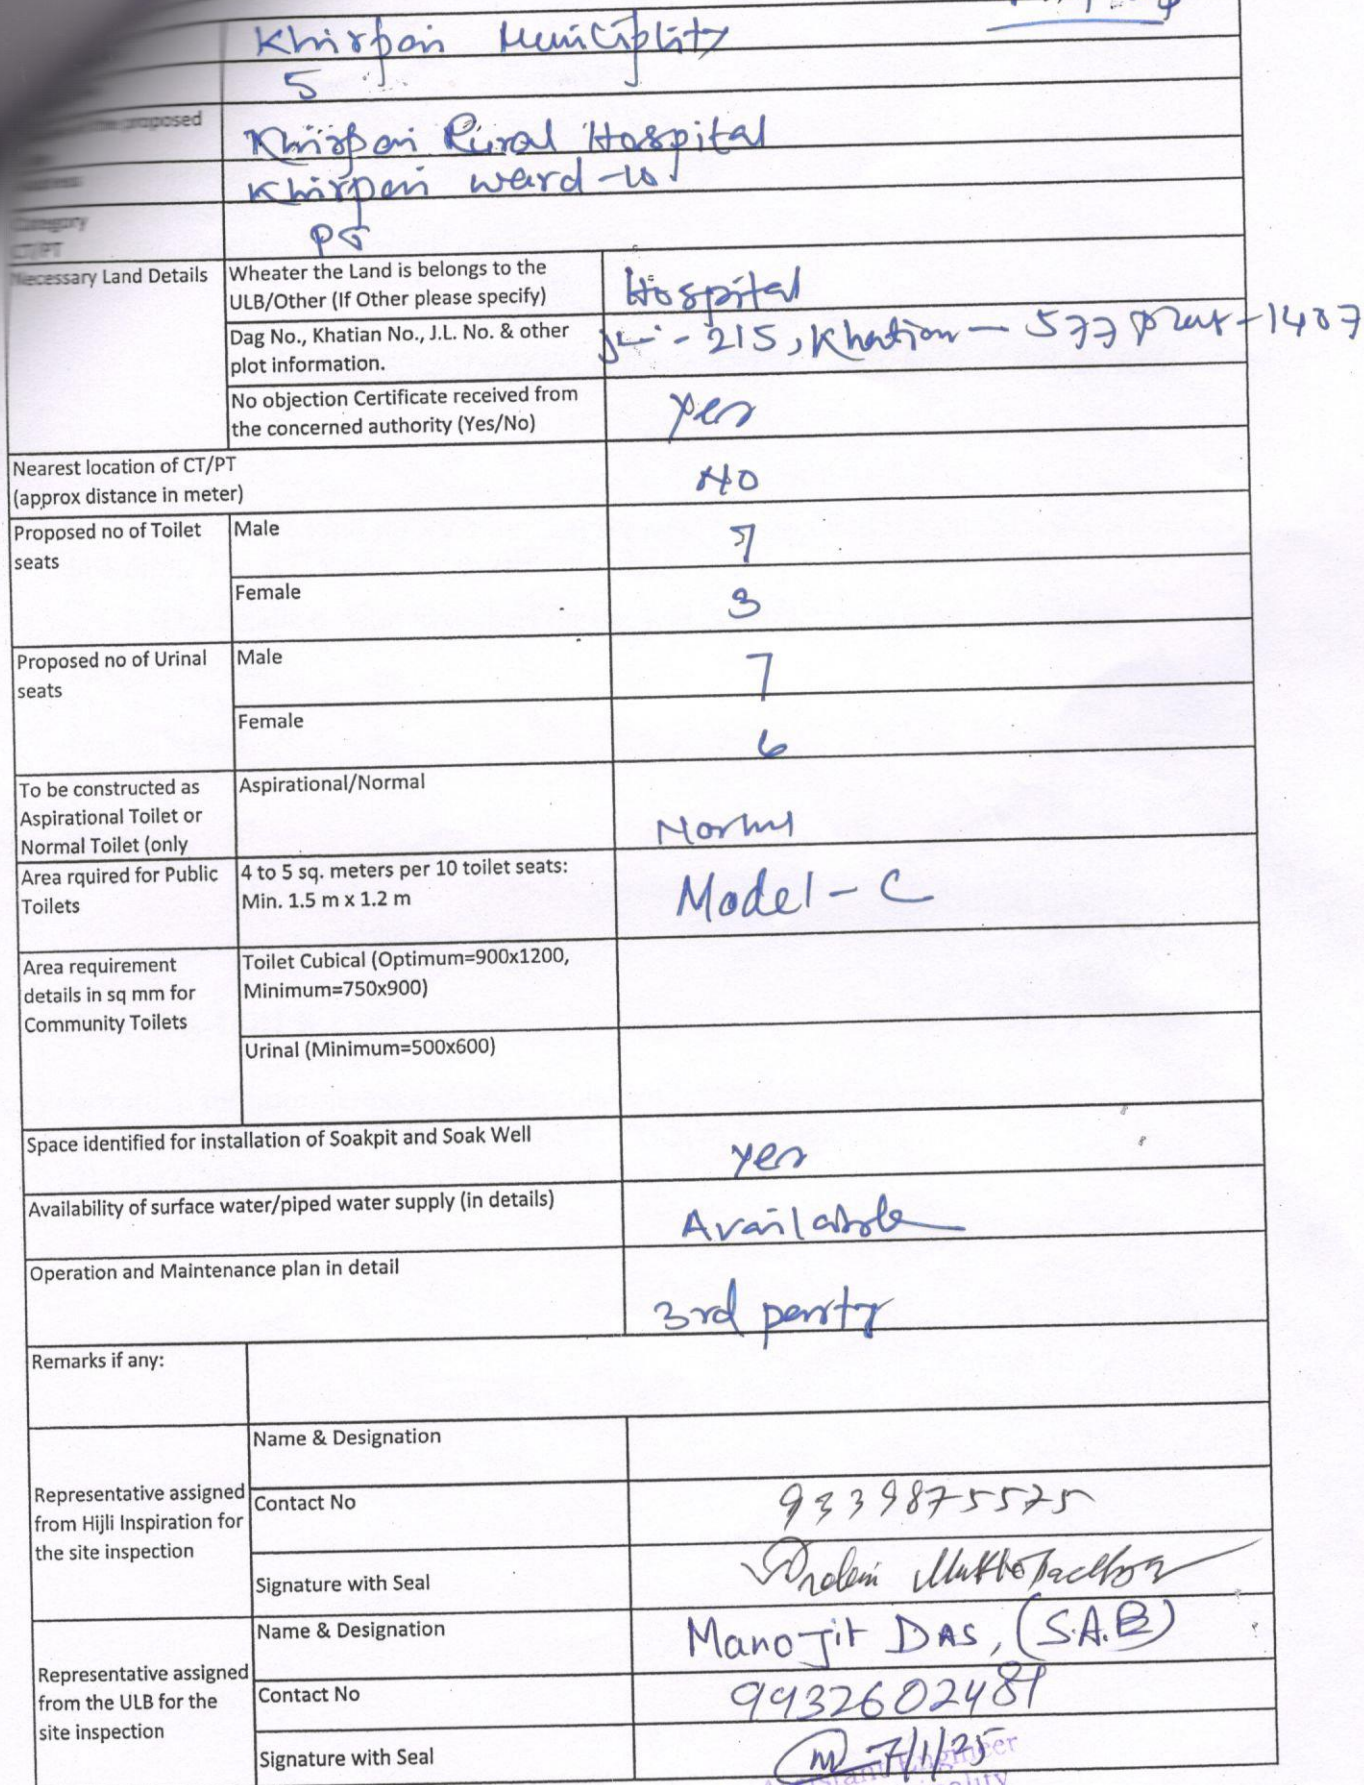 Khirpai Municiplity
5
the proposed
Khirpai Rural Hospital
Khirpai ward-10
Category
CT/PT
PT
Necessary Land Details
Wheater the Land is belongs to the
ULB/Other (If Other please specify)
Hospital
Dag No., Khatian No., J.L. No. & other
plot information.
JL - 215, Khatian - 577 Plot - 1407
No objection Certificate received from
the concerned authority (Yes/No)
yes
Nearest location of CT/PT
(approx distance in meter)
NO
Proposed no of Toilet
seats
Male
Female
3
Proposed no of Urinal
seats
Male
7
Female
6
To be constructed as
Aspirational Toilet or
Normal Toilet (only
Aspirational/Normal
Normal
Area rquired for Public
Toilets
4 to 5 sq. meters per 10 toilet seats:
Min. 1.5 m x 1.2 m
Model - C
Area requirement
details in sq mm for
Community Toilets
Toilet Cubical (Optimum=900x1200,
Minimum=750x900)
Urinal (Minimum=500x600)
Space identified for installation of Soakpit and Soak Well
yes
Availability of surface water/piped water supply (in details)
Available
Operation and Maintenance plan in detail
3rd party
Remarks if any:
Representative assigned
from Hijli Inspiration for
the site inspection
Name & Designation
Contact No
9339875575
Signature with Seal
Representative assigned
from the ULB for the
site inspection
Name & Designation
Manojit DAS, (S.A.E)
Contact No
9932602481
Signature with Seal
7/1/25
Engineer